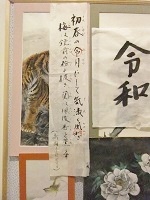 令和
初春の令月にして氣淑く風和
梅は鏡前の粉を披き蘭は珮後の香を